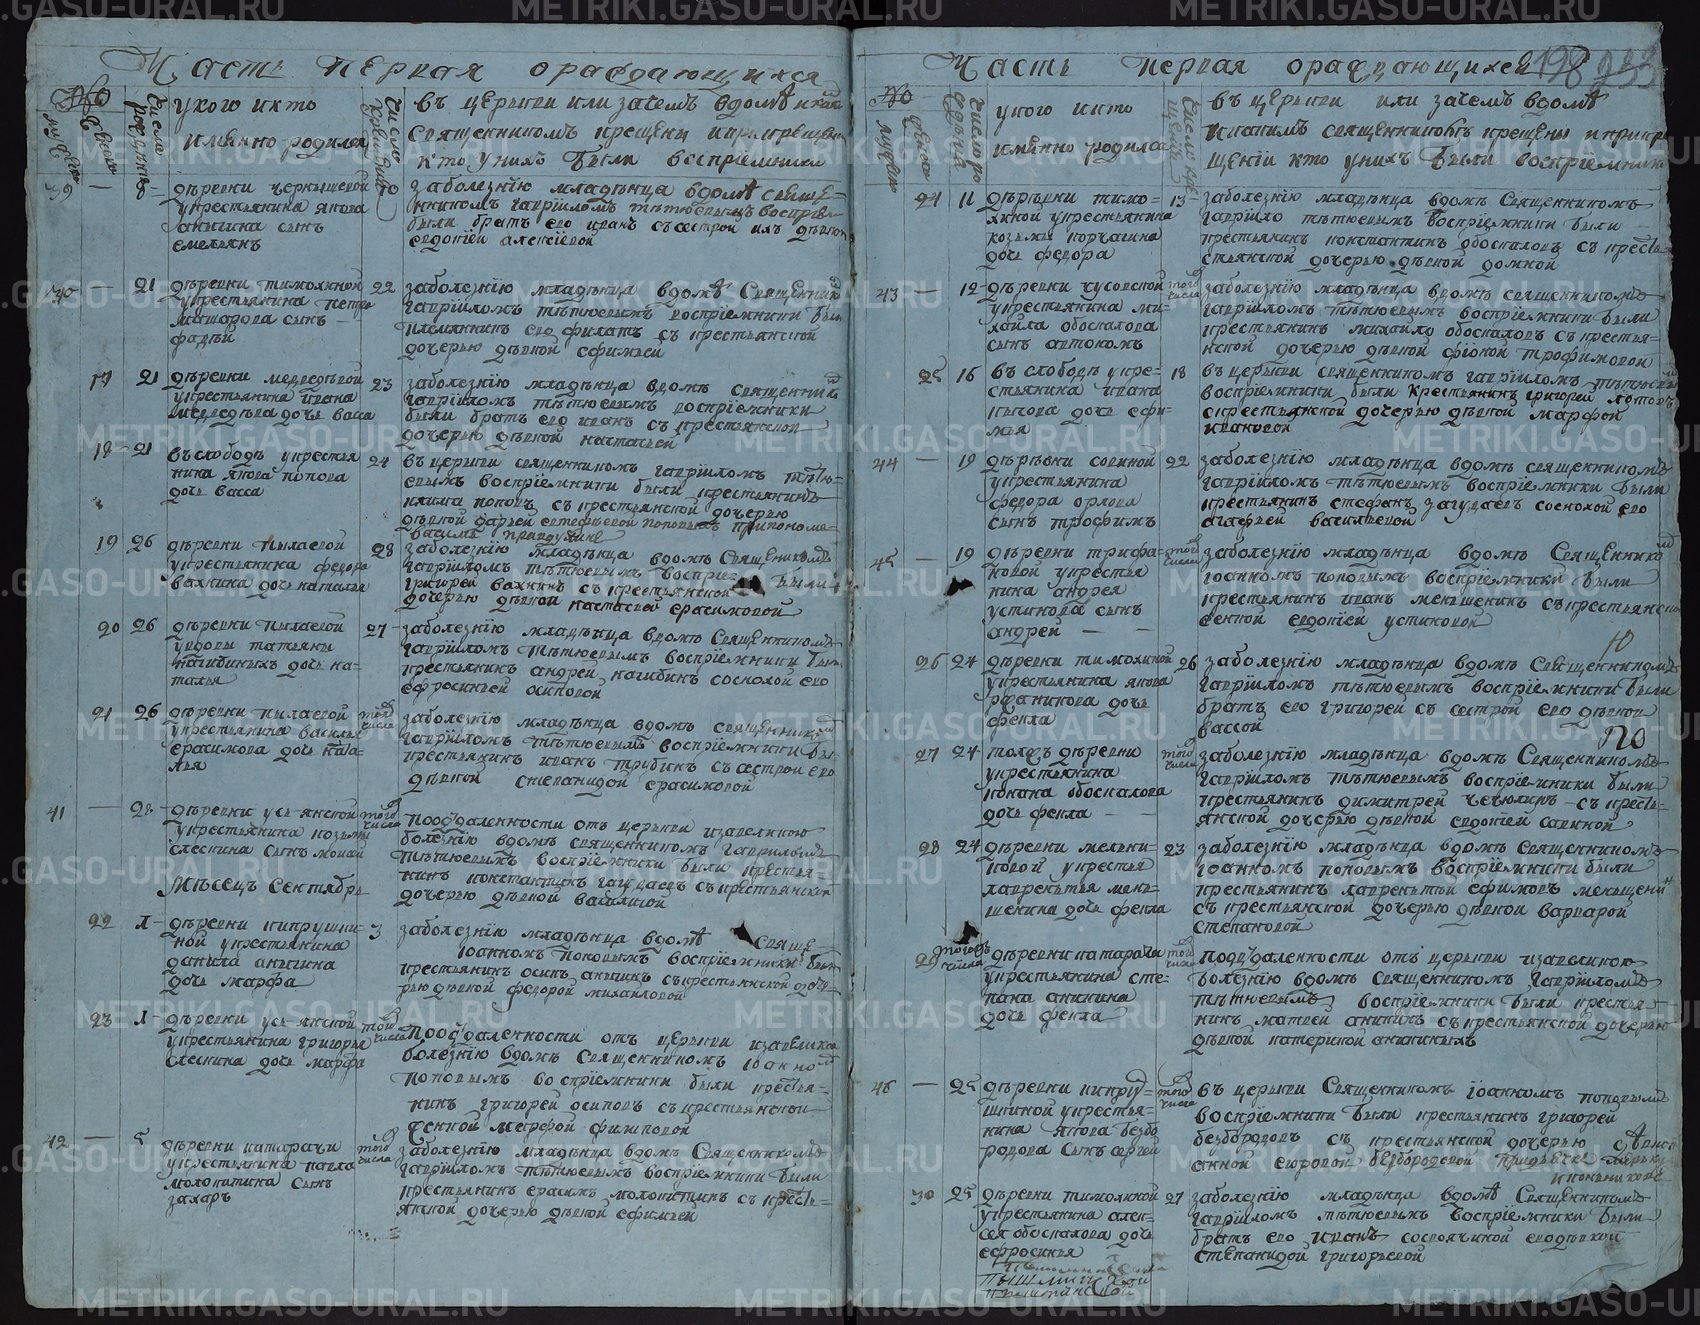 Часть первая ораждающихся
№
мужеска
женска
число рождения
укого икто
имянно родился
число крещения
въ церькви или зачемъ вдомѣ и каким
священникомъ крещены и прикрещени
кто унихъ были воспрiемники
39 —
деревни чернышевой
укрестьянина якова
аникина сынъ
емельянъ
заболезнiю младѣнца вдомѣ свяще=
нникомъ гаврiиломъ тѣтюевымъ воспрiем
были братъ ево иванъ съсестрой ихъ дѣвкой
евдокiей алексiевой
40 — 21
деревни тимохиной
укрестьянина петра
машарова сынъ —
фадѣй
22
заболезнiю младѣнца вдомѣ Священник
гаврiиломъ тѣтюевымъ воспрiемники были
племянникъ ево филатъ съ крестьянской
дочерью дѣвкой ефимьей
17 21
деревни медведѣвой
укрестьянина ивана
медведѣва дочь васса
23
заболезнiю младѣнца вдомѣ священник
гаврiиломъ тѣтюевымъ воспрiемники
были братъ ево иванъ съ крестьянской
дочерью дѣвкой настасьей
18 21
въслободѣ укрестья
нина якова попова
дочь васса
24
въ церькви священникомъ гаврiиломъ тѣтю=
евымъ воспрiемники были крестьянинъ
поповъ съ крестьянской дочерью
дѣвкой дарьей евтефьевой поповыхъ припономо=
19 26
деревни пылаевой
укрестьянина федора
вахнина дочь наталья
28
заболезнiю младѣнца вдомѣ Священникомъ
гаврiиломъ тѣтюевымъ воспрiе были
григорей вахнинъ съ крестьянской
дочерью дѣвкой настасьей ерасимовой
20 26
деревни пылаевой
увдовы татьяны
нагибиныхъ дочь на=
талья
27
заболезнiю младѣнца вдомѣ Священникомъ
гаврiиломъ тѣтюевымъ воспрiемники были
крестьянинъ андрей нагибинъ соснохой ево
ефросиньей осиповой
21 26
деревни пылаевой
укрестьянина василья
ерасимова дочь ната
лья
того числа
заболезнiю младѣнца вдомѣ священником
гаврiиломъ тѣтюевымъ воспрiемники бы
крестьянинъ иванъ трубинъ съсестрой ево
дѣвкой степанидой ерасимовой
41 — 28
деревни усьянской
укрестьянина козьмы
слескина сынъ
того числа
поотдаленности отъ церькви изавеликою
болезнiю вдомѣ священникомъ гаврiиломъ
тѣтюевымъ воспрiемники были крестья
нинъ константинъ съ крестьянской
дочерью дѣвкой василисой
Мѣсецъ Сентябрь
22 1
деревни кипрушки=
ной укрестьянина
данила аникина
дочь марфа
3
заболезнiю младѣнца вдомѣ Свяще
Iоанномъ поповымъ воспрiемники были
крестьянинъ осипъ аникинъ съкрестьянской доче
рью дѣвкой федорой михаиловой
23 1
деревни усьянской
укрестьянина григорья
слескина дочь марфа
того числа
поотдаленности отъ церькви изавеликой
болезнiю вдомѣ Священникомъ Iоанномъ
поповымъ воспрiемники были крестья=
нинъ григорей осиповъ съкрестьянской
женкой марфой филиповой
42 — 5
деревни катарачи
укрестьянина павла
молокитина сынъ
захаръ
того числа
заболезнiю младѣнца вдомѣ Священникомъ
гаврiиломъ тѣтюевымъ воспрiемники были
крестьянинъ ерасимъ молокитинъ съ кресть=
янской дочерью дѣвкой ефимьей
Часть первая ораждающихся
198
№
мужеска
женска
число рождения
укого икто
имянно родился
число крещенiя
въ церькви или зачемъ вдомѣ
и какимъ священникомъ крещены и прикре
щенiи кто унихъ были воспрiемники
24 11
деревни тимо=
хиной укрестьянина
козьмы корчагина
дочь федора
13
заболезнiю младѣнца вдомѣ Священникомъ
гаврiило тѣтюевымъ воспрiемники были —
крестьянинъ константинъ обоскаловъ съ кресть=
стьянской дочерью дѣвкой домной
43 — 12
деревни чусовской
укрестьянина ми=
хайла обоскалова
сынъ автономъ
того числа
заболезнiю младѣнца вдомѣ священникомъ
гаврiиломъ тѣтюевымъ воспрiемники были
крестьянинъ михайло обоскаловъ съ крестья=
нской дочерью дѣвкой фiоной трофимовой
25 16
въ слободѣ укре=
стьянина ивана
дочь ефи=
мья
18
въ церькви священникомъ гаврiиломъ тѣтюевым
воспрiемники были крестьянинъ григорей
съкрестьянской дочерью дѣвкой марфой
ивановой
44 — 19
деревни совиной
укрестьянина
федора орлова
сынъ трофимъ
22
заболезнiю младѣнца вдомѣ священникомъ
гаврiиломъ тѣтюевымъ воспрiемники были
крестьянинъ стефанъ соснохой ево
агафьей васильевой
45 — 19
деревни трифа=
новой укрестья
нина андрея
устинова сынъ
андрей — —
того числа
заболезнiю младѣнца вдомѣ Священнико
Iоанномъ поповымъ воспрiемники были
крестьянинъ иванъ меньшенинъ съкрестьянско
женкой евдокiей устиновой
26 24
деревни тимохиной
укрестьянина якова
дочь
фекла
26
заболезнiю младѣнца вдомѣ Священникомъ
гаврiиломъ тѣтюевымъ воспрiемники были
братъ ево григорей съ сестрой ево дѣвкой
вассой
27 24
тоежъ деревни
укрестьянина
конана обоскалова
дочь фекла —
того числа
заболезнiю младѣнца вдомѣ Священникомъ
гаврiиломъ тѣтюевымъ воспрiемники были
крестьянинъ димитрей съ кресть=
янской дочерью дѣвкой евдокiей савиной
28 24
деревни мельни=
ковой укрестья
лаврентья мень=
шенина дочь фекла
23
заболезнiю младѣнца вдомѣ Священникомъ
Iоанномъ поповымъ воспрiемники были
крестьянинъ лаврентей ефимовъ меньшени
съ крестьянской дочерью дѣвкой варварой
степановой
29 тогожъ числа
деревни катарачи
укрестьянина сте=
пана аникина
дочь фекла
того числа
поотдаленности отъ церькви изавеликою
болезнiю вдомѣ Священникомъ гаврiиломъ
тѣтюевымъ воспрiемники были крестья
нинъ матвей аникинъ съкрестьянской дочерью
дѣвкой катериной аникиныхъ
46 — 25
деревни кипру=
шкиной укрестья=
нина якова безбо
родова сынъ сергей
того числа
въ церькви Священникомъ Iоанномъ поповымъ
воспрiемники были крестьянинъ григорей
безбородовъ съ крестьянской дочерью
анной безбородовой
30 25
деревни тимохиной
укрестьянина алек=
сея обоскалова дочь
ефросинья
27
заболезнiю младѣнца вдомѣ Священникомъ
гаврiиломъ тѣтюевымъ воспрiемники были
братъ ево иванъ ево дѣвкой
степанидой григорьевой
METRIKI.GASO-URAL.RU